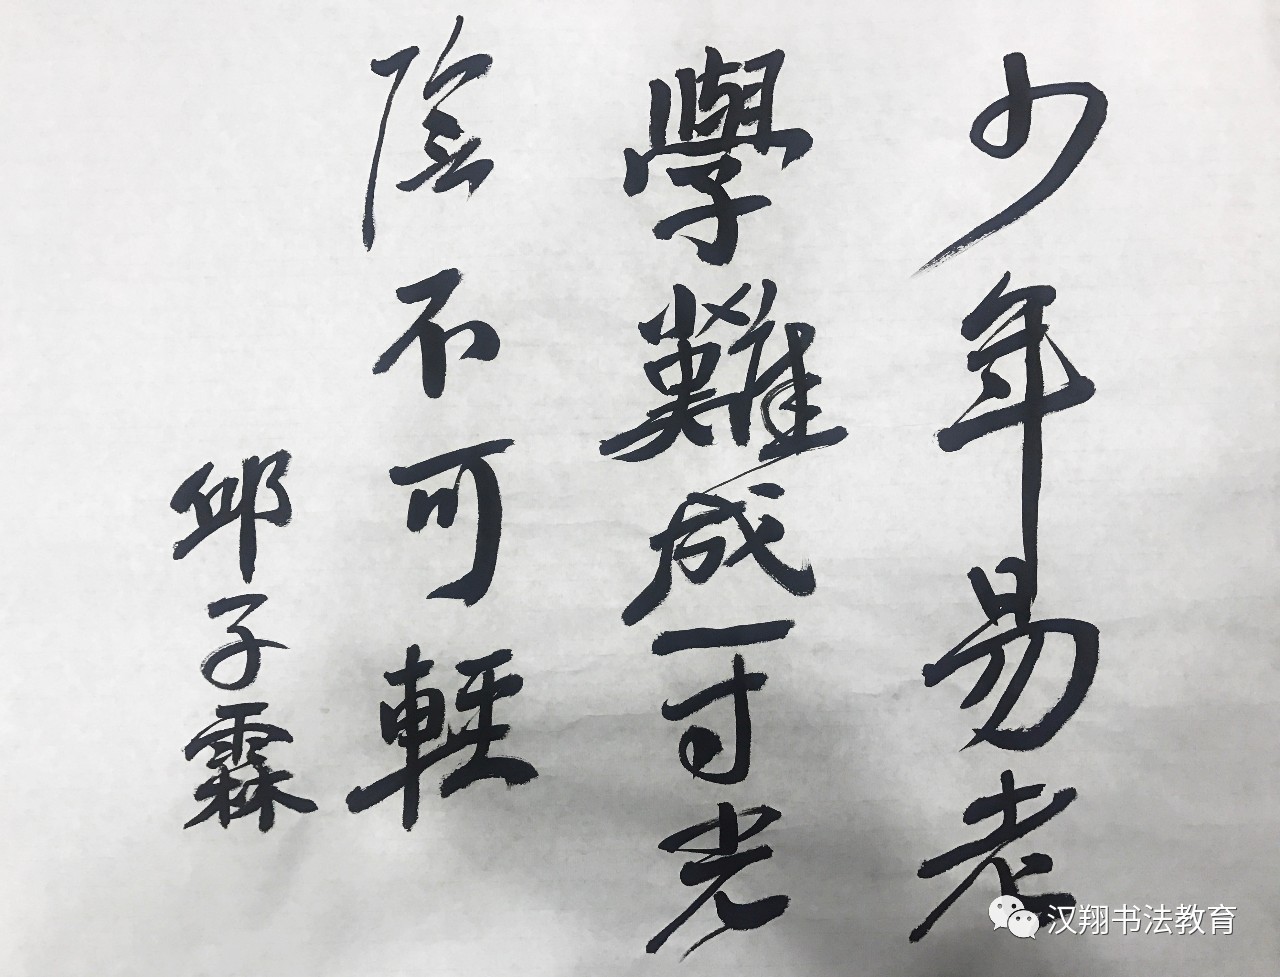 少年易老
學難成一寸光
陰不可輕
邱子霖
汉翔书法教育